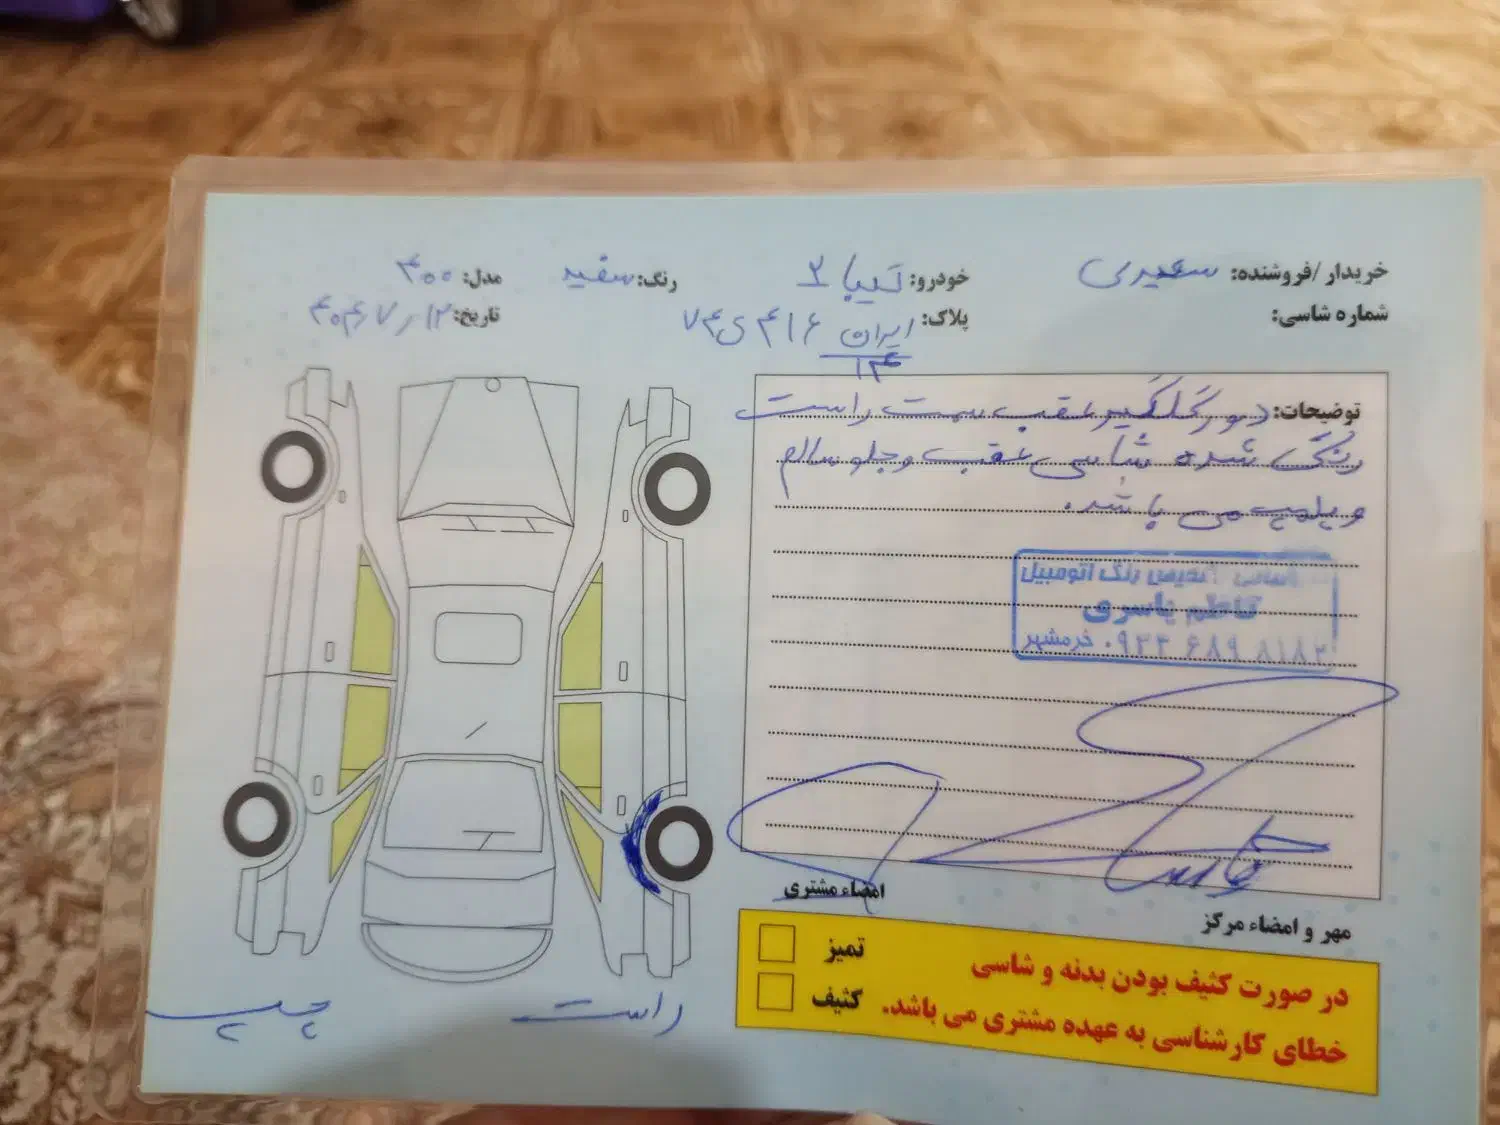 خریدار /فروشنده: سعیدی
خودرو: تیبا ۲
رنگ: سفید
مدل: ۴۰۰
شماره شاسی:
پلاک: ایران ۶۱۴ ی ۷۴
۱۴
تاریخ: ۱۲ / ۷ / ۴۰۴
توضیحات: دور گلگیر عقب سمت راست
رنگ شده شاسی عقب و جلو سالم
و پلمپ می باشد.
تشخیص رنگ اتومبیل
کاظم یاسری
۰۹۳۳ ۶۸۹ ۸۱۸۲ خرمشهر
امضاء مشتری
مهر و امضاء مرکز
تمیز
کثیف
در صورت کثیف بودن بدنه و شاسی
خطای کارشناسی به عهده مشتری می باشد.
راست
چپ